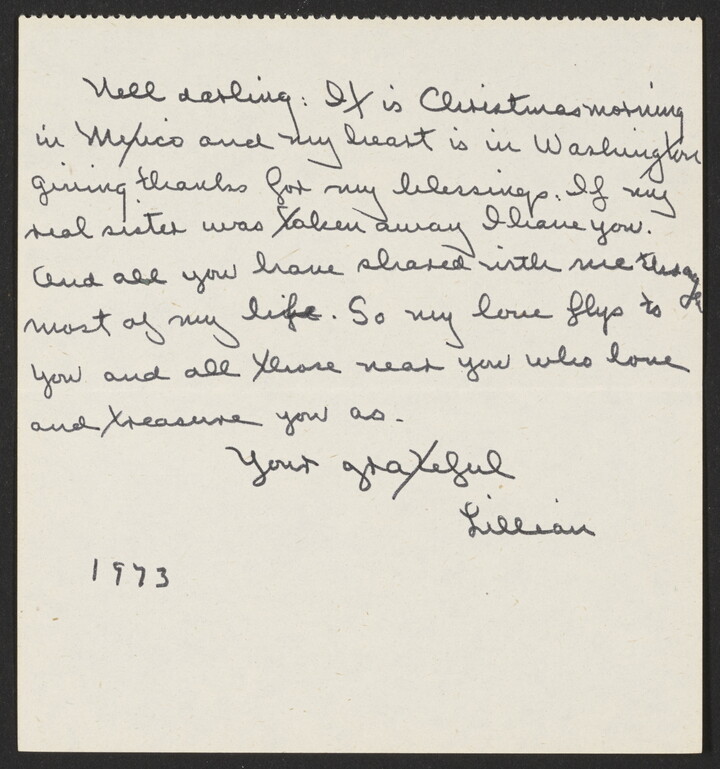 Nell darling: It is Christmas morning
in Mexico and my heart is in Washington
giving thanks for my blessings. If my
real sister was taken away I have you.
And all you have shared with me through
most of my life. So my love flys to
you and all those near you who love
and treasure you as.
Your grateful
Lillian
1973